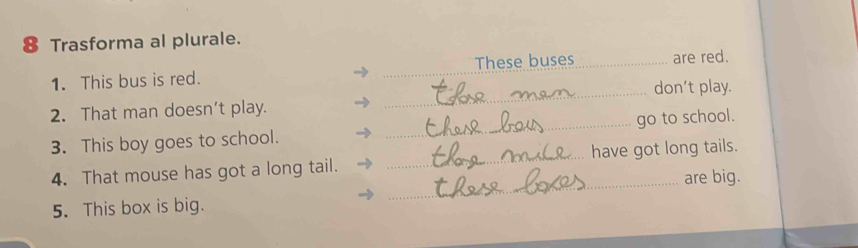 8 Trasforma al plurale.
1. This bus is red. → These buses are red.
2. That man doesn't play. → those men don't play.
3. This boy goes to school. → these boys go to school.
4. That mouse has got a long tail. → those mice have got long tails.
5. This box is big. → these boxes are big.